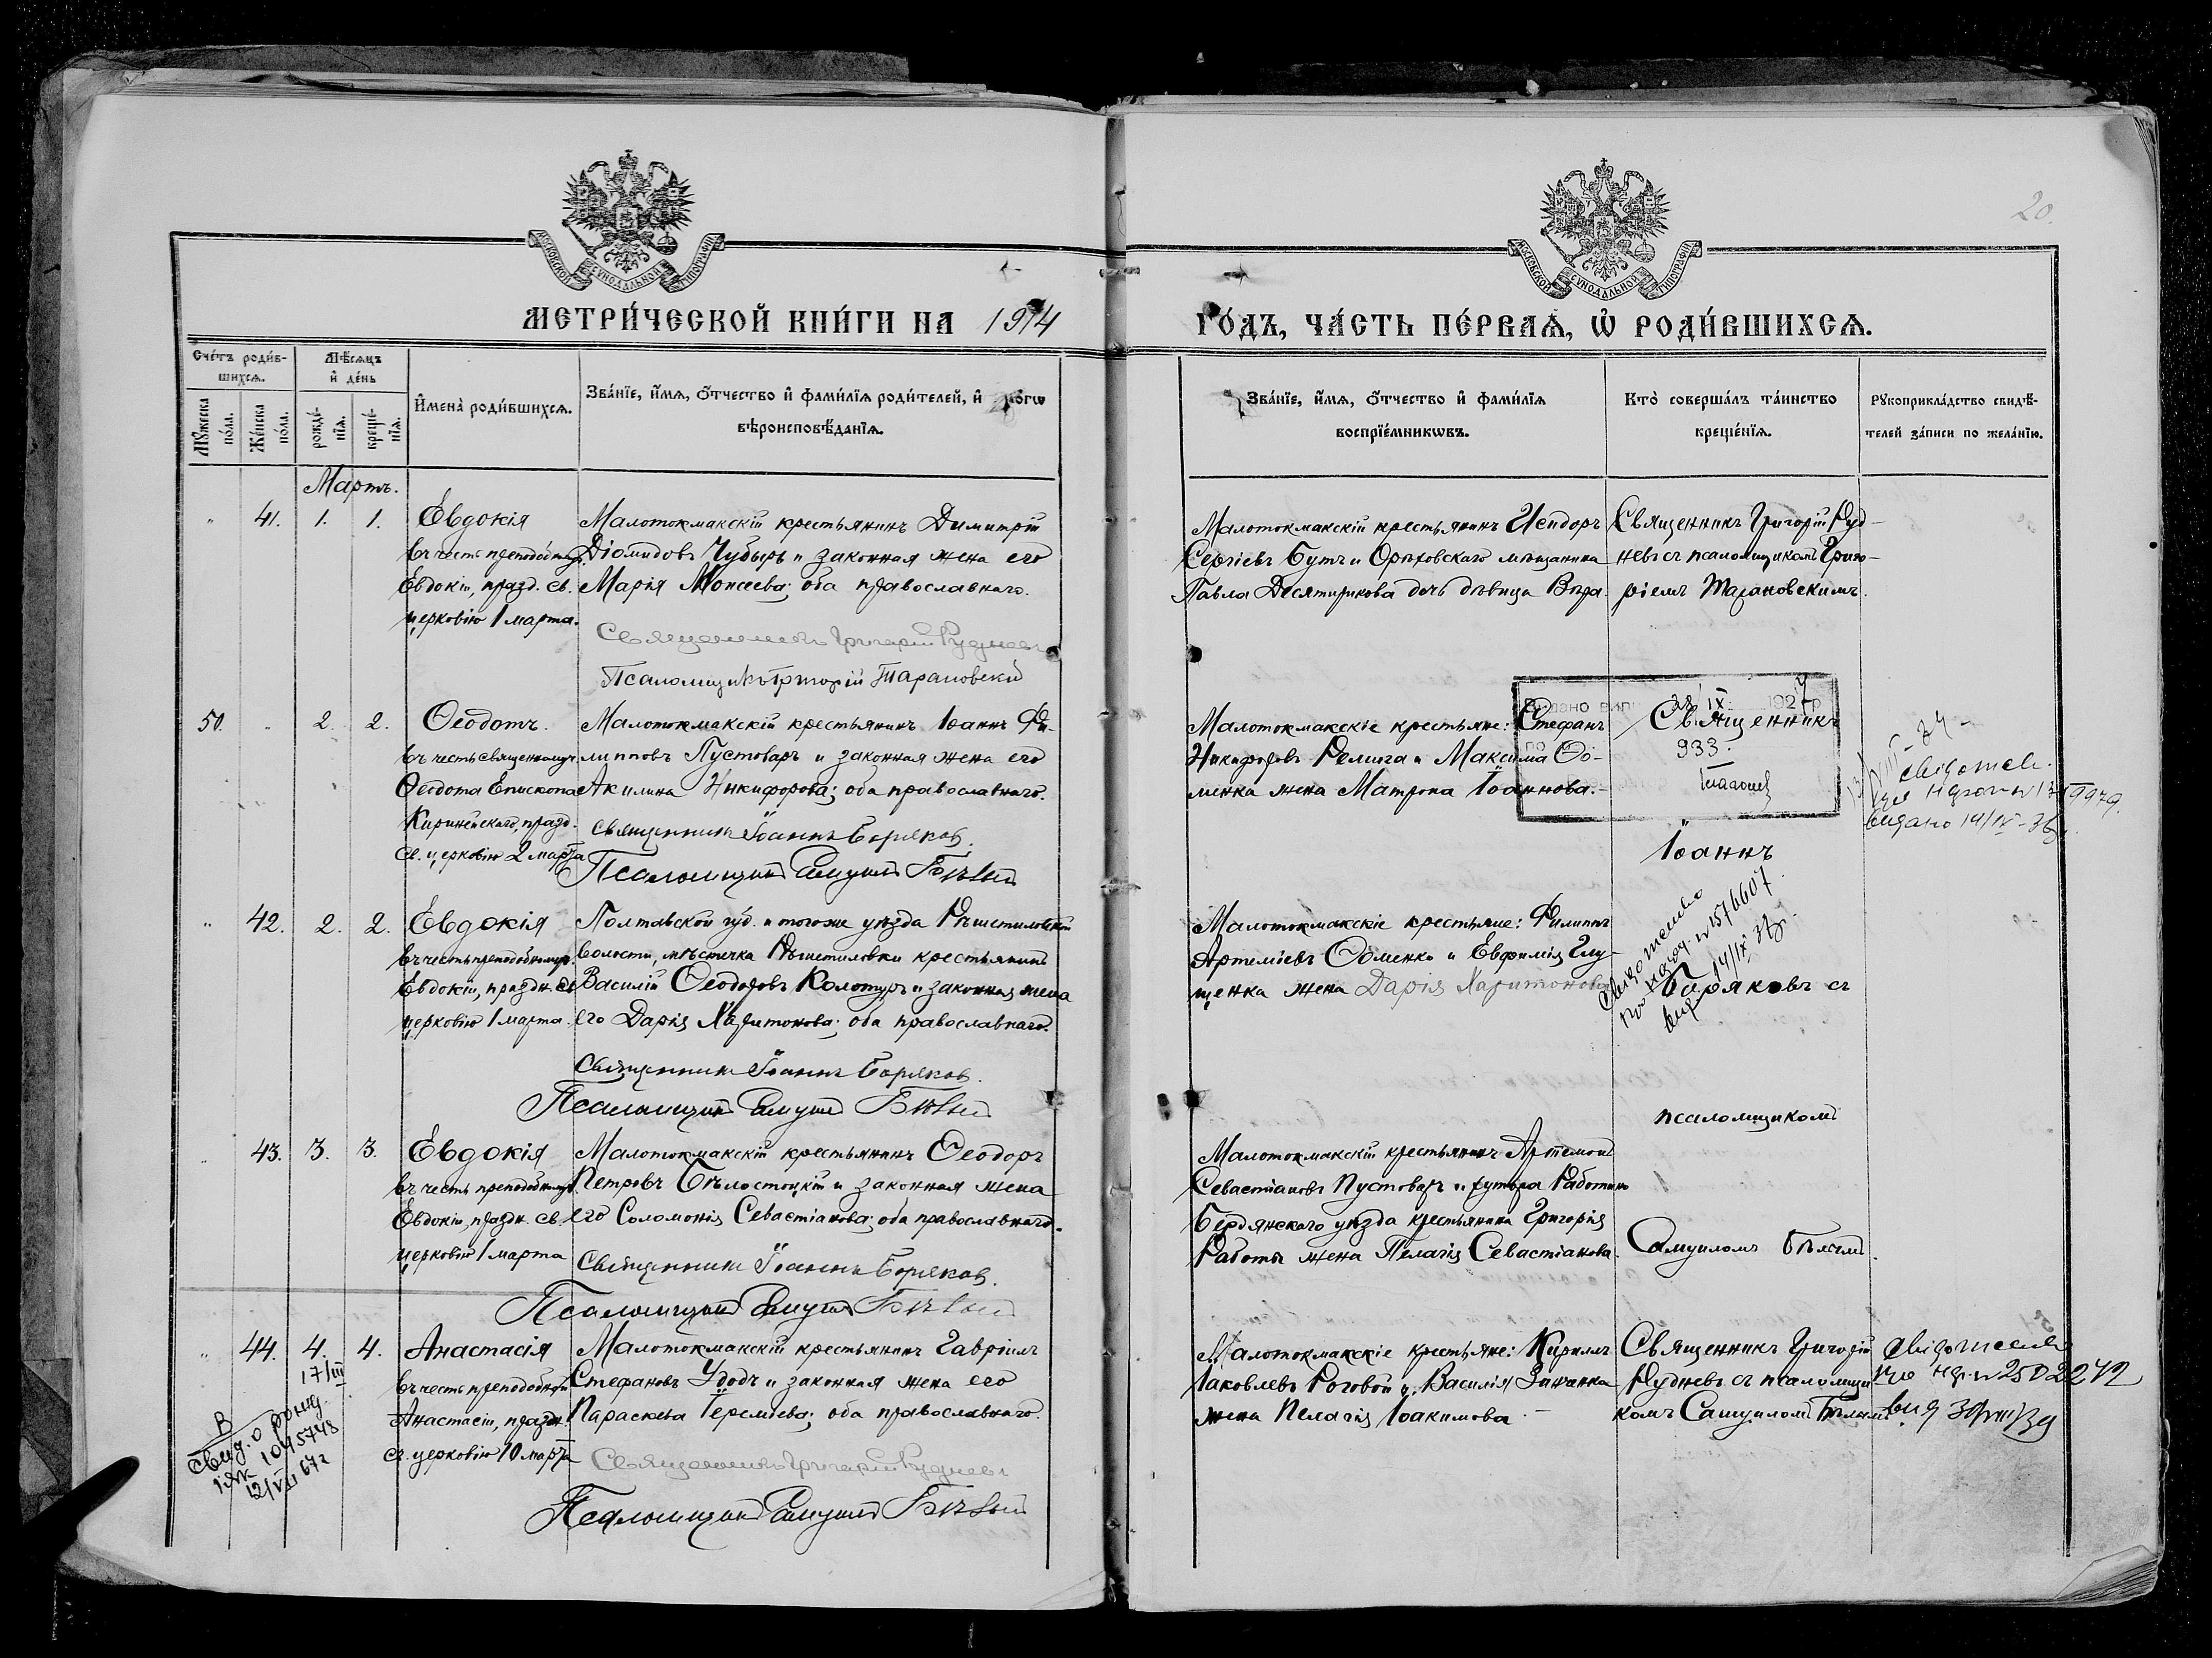 20.
МОСКОВСКОЙ СѴНОДАЛЬНОЙ ТИПОГРАФІИ
МОСКОВСКОЙ СѴНОДАЛЬНОЙ ТИПОГРАФІИ
МЕТРИ́ЧЕСКОЙ КНИ́ГИ НА 1914
ГО́ДЪ, ЧА́СТЬ ПЕ́РВАѦ, Ѽ РОДИ́ВШИХСѦ.
Сче́тъ роди́в-
шихсѧ.
Мѣ́сѧцъ
и҆ де́нь
Мꙋ́жеска по́ла.
Же́нска по́ла.
рожде́-
нїѧ.
креще́-
нїѧ.
И҆мена̀ роди́вшихсѧ.
Зва́нїе, и҆́мѧ, ѻ҆́тчество и҆ фами́лїѧ роди́телей, и҆ ко́гѡ
вѣроисповѣ́данїѧ.
Зва́нїе, и҆́мѧ, ѻ҆́тчество и҆ фами́лїѧ
воспрїе́мникѡвъ.
Кто̀ соверша́лъ та́инство
креще́нїѧ.
Рꙋкоприкла́дство свидѣ́-
телей за́писи по жела́нїю.
Мартъ.
" 41. 1. 1. Евдокія
въ честь преподобномуч.
Евдокіи, празд. св.
церковію 1 марта.
Малотокмакскій крестьянинъ Димитрій
Діомидовъ Чубырь и законная жена его
Марія Моисеева; оба православнаго.
Священникъ Григорій Рудневъ
Псаломщикъ Григорій Тарановскій
Малотокмакскій крестьянинъ Исидоръ
Сергіевъ Бутъ и Орѣховскаго мѣщанина
Павла Десятирикова дочь дѣвица Вѣра.
Священникъ Григорій Руд-
невъ съ псаломщикомъ Григо-
ріемъ Тарановскимъ.
50. " 2. 2. Ѳеодотъ.
въ честь священномуч.
Ѳеодота Епископа
Киринейскаго, празд.
св. церковію 2 марта
Малотокмакскій крестьянинъ Іоаннъ Фи-
липповъ Пустоваръ и законная жена его
Акилина Никифорова; оба православнаго.
Священникъ Іоаннъ Боряковъ.
Псаломщикъ Самуилъ Бѣлый
Малотокмакскіе крестьяне: Стефанъ
Никифоровъ Ремига и Максима Фо-
менка жена Матрона Іоаннова.
28/IX 1927 р.
933.
Священникъ
Іоаннъ
видано 14/IX-36
" 42. 2. 2. Евдокія
въ честь преподобномуч.
Евдокіи, праздн. св.
церковію 1 марта.
Полтавской губ. и того же уѣзда Рѣшетиловской
волости, мѣстечка Рѣшетиловки крестьянинъ
Василій Ѳеодоровъ Колотуръ и законная жена
его Дарія Харитонова; оба православнаго.
Священникъ Іоаннъ Боряковъ.
Псаломщикъ Самуилъ Бѣлый
Малотокмакскіе крестьяне: Филиппъ
Артеміевъ Фоменко и Евфимія Глу-
щенка жена Дарія Харитонова
1576607
14/IX
Боряковъ съ
псаломщикомъ
" 43. 3. 3. Евдокія
въ честь преподобномуч.
Евдокіи, праздн. св.
церковію 1 марта
Малотокмакскій крестьянинъ Ѳеодоръ
Петровъ Бѣлостоцкій и законная жена
его Соломонія Севастіанова; оба православнаго.
Священникъ Іоаннъ Боряковъ.
Псаломщикъ Самуилъ Бѣлый
Малотокмакскій крестьянинъ Артемонъ
Севастіановъ Пустоваръ и хутора Работино
Бердянскаго уѣзда крестьянина Григорія
Работы жена Пелагія Севастіанова.
Самуиломъ Бѣлымъ.
" 44. 4. 4. Анастасія
17/III
въ честь преподобной
Анастасіи, праздн.
св. церковію 10 марта
В
свид. о рожд.
1045748
12/VII 67г
Малотокмакскій крестьянинъ Гавріилъ
Стефановъ Удодъ и законная жена его
Параскева Іереміева; оба православнаго.
Священникъ Григорій Рудневъ
Псаломщикъ Самуилъ Бѣлый
Малотокмакскіе крестьяне: Кириллъ
Іаковлевъ Роговой и Василія Зинченка
жена Пелагія Іоакимова.
Священникъ Григорій
Рудневъ съ псаломщи-
комъ Самуиломъ Бѣлымъ